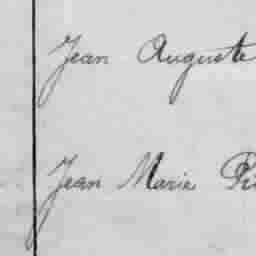 Jean Auguste
Jean Marie